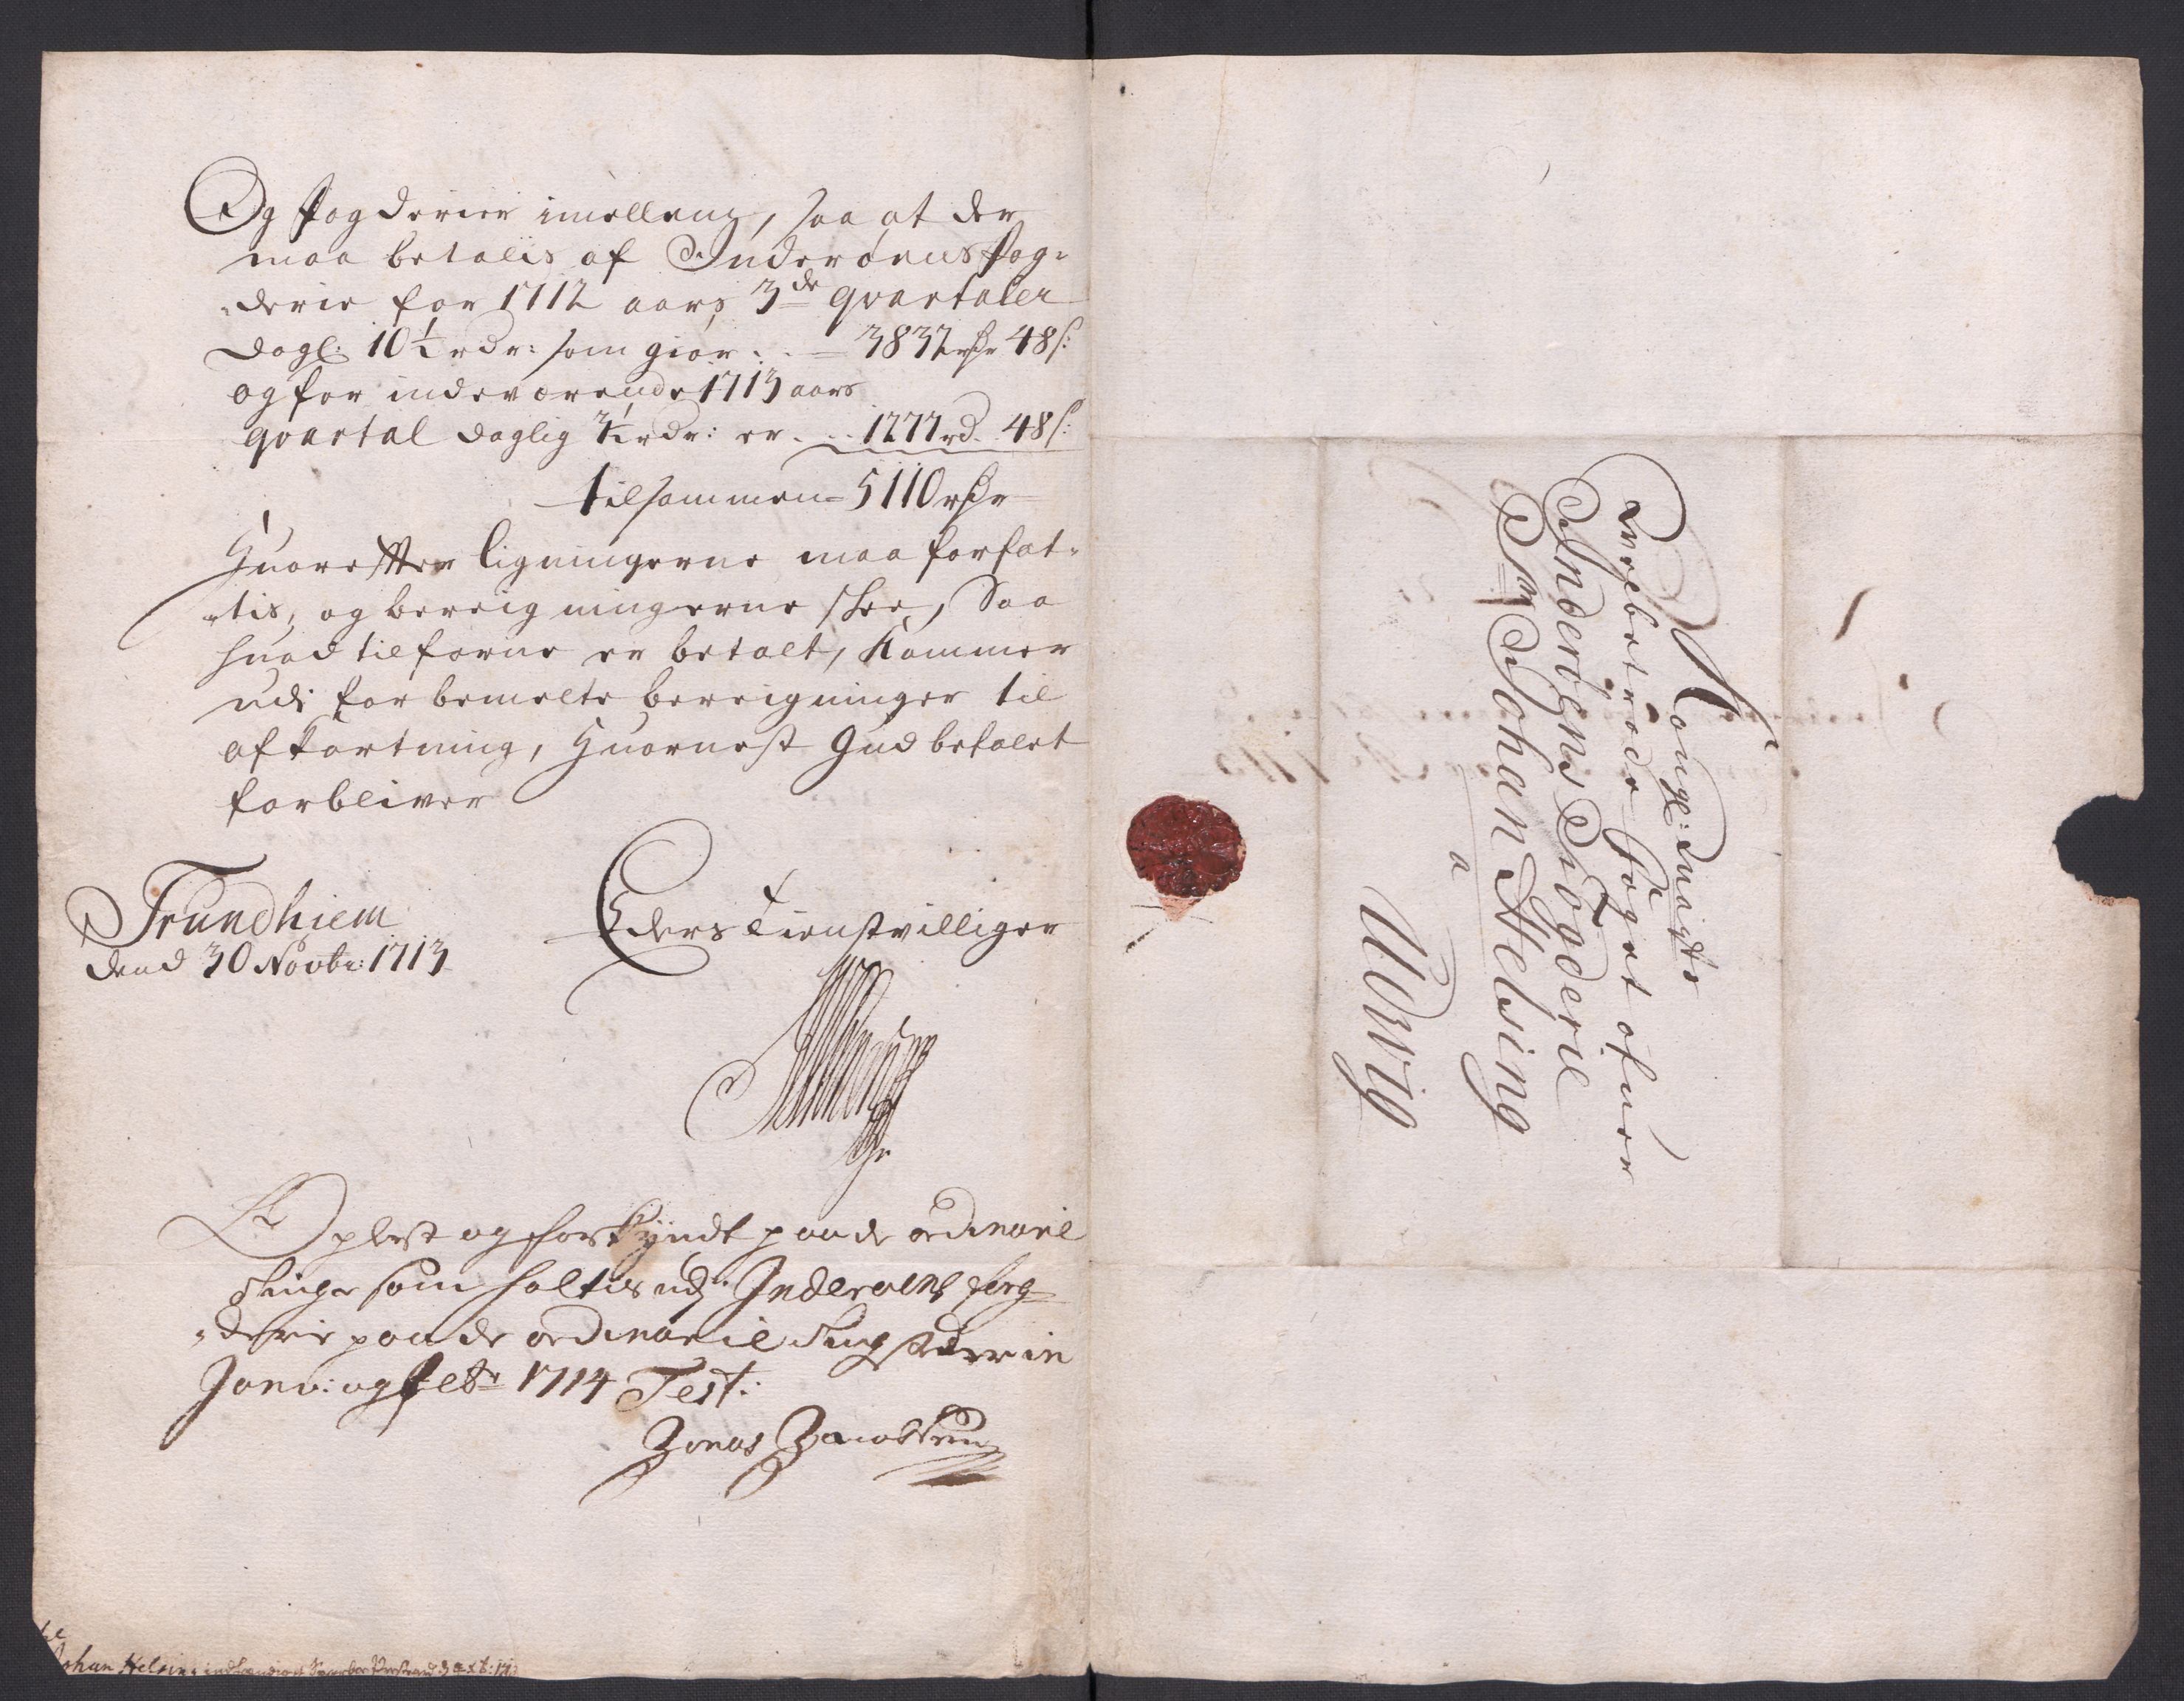 Og fogderier imellem, saa at der
maa betalis af Inderøens fog-
-derie for 1712 aars 3de qvartaler
dagl: 10½ rdr: som giør . . 3832 rdr 48 s:
og for indeværende 1713 aars
qvartal daglig 3½ rdr: er . . 1277 rd. 48 s:
tilsammen 5110 rdr
Huorefter ligningerne maa forfat-
-tis, og bereigningerne skee, Saa
huad tilforne er betalt, kommer
udi forbemelte bereigninger til
afkortning, Huornest Gud befalet
forbliver
Trundhiem
dend 30 Novbr: 1713
Eders tienstvilliger
Oplest og forkyndt paa de ordinarie
Tinge som holtes udj Inderøens fog-
-derie paa de ordinarie Tingsteder in
Janv: og febr 1714 Test:
Jonas Jacobsen
Johan Helsing
Kongl: Mayts
Velbetrode foget ofuer
Inderøens Fogderie
Sr Johan Helsing
a
Udvig